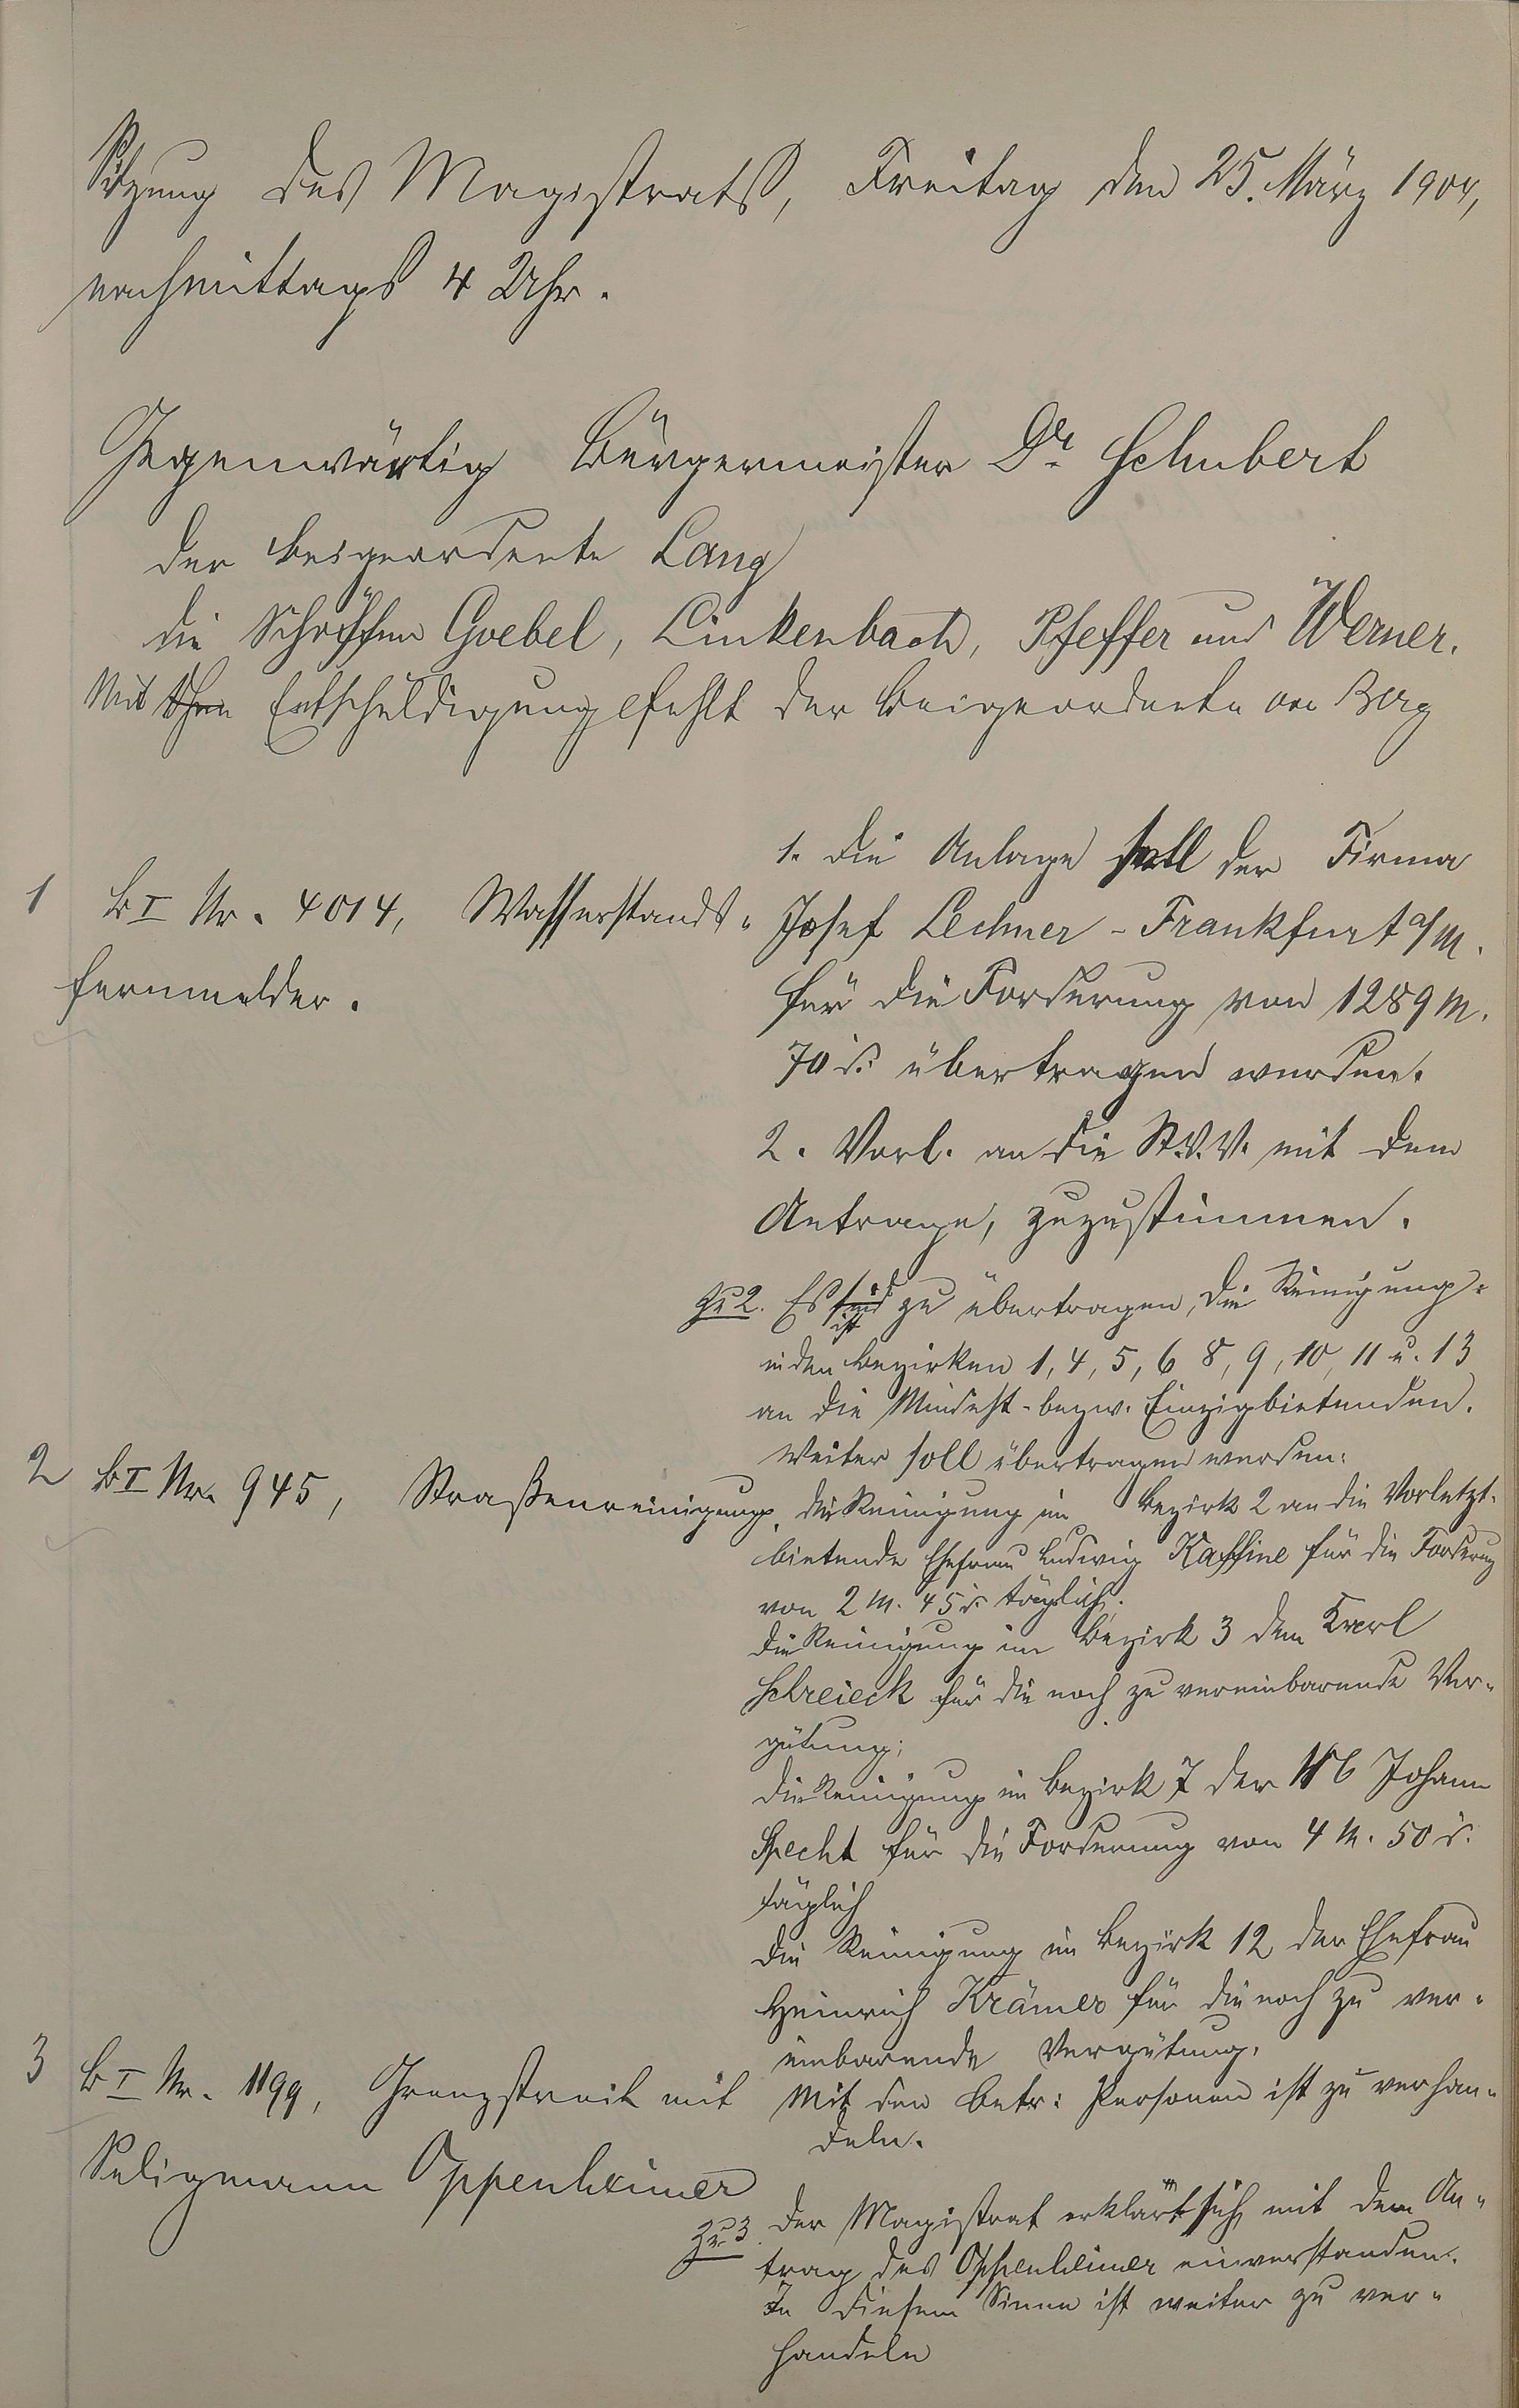 Sitzung des Magistrats, Freitag den 25. März 1904,
nachmittags 4 Uhr.
Gegenwärtig Bürgermeister Dr. Schubert
der Beigeordnete Lang
die Schöffen Goebel, Linkenbach, Pfeffer und Werner.
Mit Entschuldigung fehlt der Beigeordnete
1
B I Nr. 4014, Wasserstands-
fernmelder.
1. Die Anlage soll der Firma
Josef Lechner - Frankfurt a/M.
für die Forderung von 1289 M.
70 d. übertragen werden.
2. Vorl. an die St.V.V. mit dem
Antrage, zuzustimmen.
2
B I Nr. 945, Straßenreinigung.
zu 2. Es ist zu übertragen, die Reinigung
in den Bezirken 1, 4, 5, 6 8, 9, 10, 11 u. 13
an die Mindest- bezw. Einzigbietenden.
Weiter soll übertragen werden:
die Reinigung im Bezirk 2 an die Vorletzt-
bietende Ehefrau Ludwig Kaffine für die Forderung
von 2 M. 45 d. täglich.
die Reinigung im Bezirk 3 dem Karl
Schreieck für die noch zu vereinbarende Ver-
gütung;
die Reinigung im Bezirk 7 der Johann
Specht für die Forderung von 4 M. 50 d.
täglich
die Reinigung im Bezirk 12 der Ehefrau
Heinrich Krämer für die noch zu ver-
einbarende Vergütung.
Mit den betr: Personen ist zu verhan-
deln.
3
B I Nr. 1199, Grenzstreit mit
Seligmann Oppenheimer
zu 3. Der Magistrat erklärt sich mit dem An-
trag des Oppenheimer einverstanden.
In diesem Sinne ist weiter zu ver-
handeln